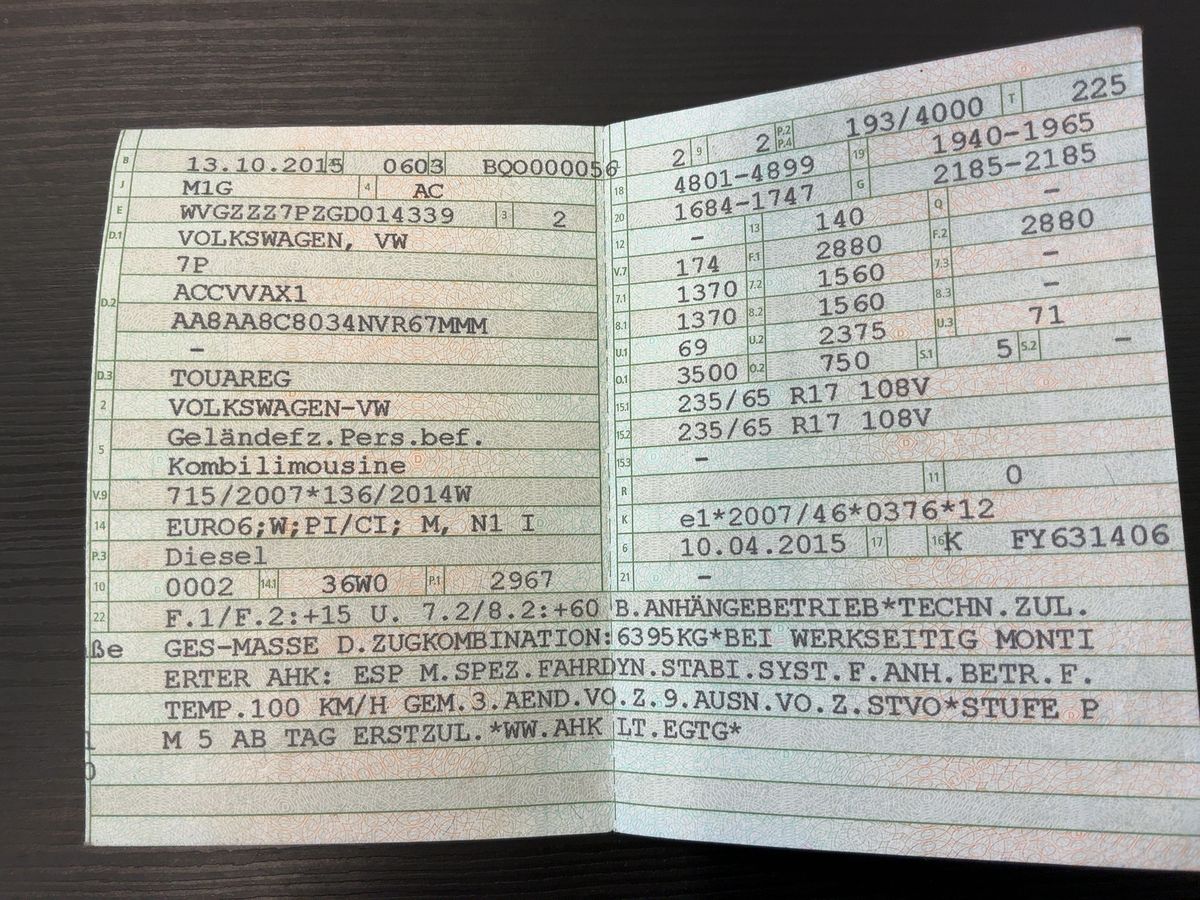 B 13.10.2015 0603 BQO000056
J M1G 4 AC
E WVGZZZ7PZGD014339 3 2
D.1 VOLKSWAGEN, VW
7P
D.2 ACCVVAX1
AA8AA8C8034NVR67MMM
–
D.3 TOUAREG
2 VOLKSWAGEN-VW
5 Geländefz.Pers.bef.
Kombilimousine
V.9 715/2007*136/2014W
14 EURO6;W;PI/CI; M, N1 I
P.3 Diesel
10 0002 14.1 36W0 P.1 2967
2 9 2 P.2 P.4 193/4000 T 225
18 4801-4899 19 1940-1965
20 1684-1747 G 2185-2185
12 – 13 140 Q –
V.7 174 F.1 2880 F.2 2880
7.1 1370 7.2 1560 7.3 –
8.1 1370 8.2 1560 8.3 –
U.1 69 U.2 2375 U.3 71
O.1 3500 O.2 750 S.1 5 S.2 –
15.1 235/65 R17 108V
15.2 235/65 R17 108V
15.3 –
R 11 0
K e1*2007/46*0376*12
6 10.04.2015 17 16 K FY631406
21 –
22 F.1/F.2:+15 U. 7.2/8.2:+60 B.ANHÄNGEBETRIEB*TECHN.ZUL.
GES-MASSE D.ZUGKOMBINATION:6395KG*BEI WERKSEITIG MONTI
ERTER AHK: ESP M.SPEZ.FAHRDYN.STABI.SYST.F.ANH.BETR.F.
TEMP.100 KM/H GEM.3.AEND.VO.Z.9.AUSN.VO.Z.STVO*STUFE P
M 5 AB TAG ERSTZUL.*WW.AHK LT.EGTG*